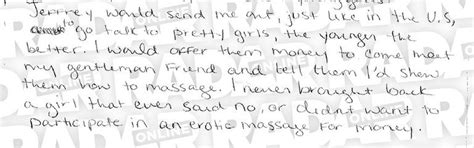 Jerrrey would send me out, just like in the U.S,
to go talk to pretty girls, the younger the
better. I would offer them money to come meet
my gentleman friend and tell them I'd show
them how to massage. I never brought back
a girl that ever said no, or didnt want to
participate in an erotic massage for money.
RADAR
ONLINE